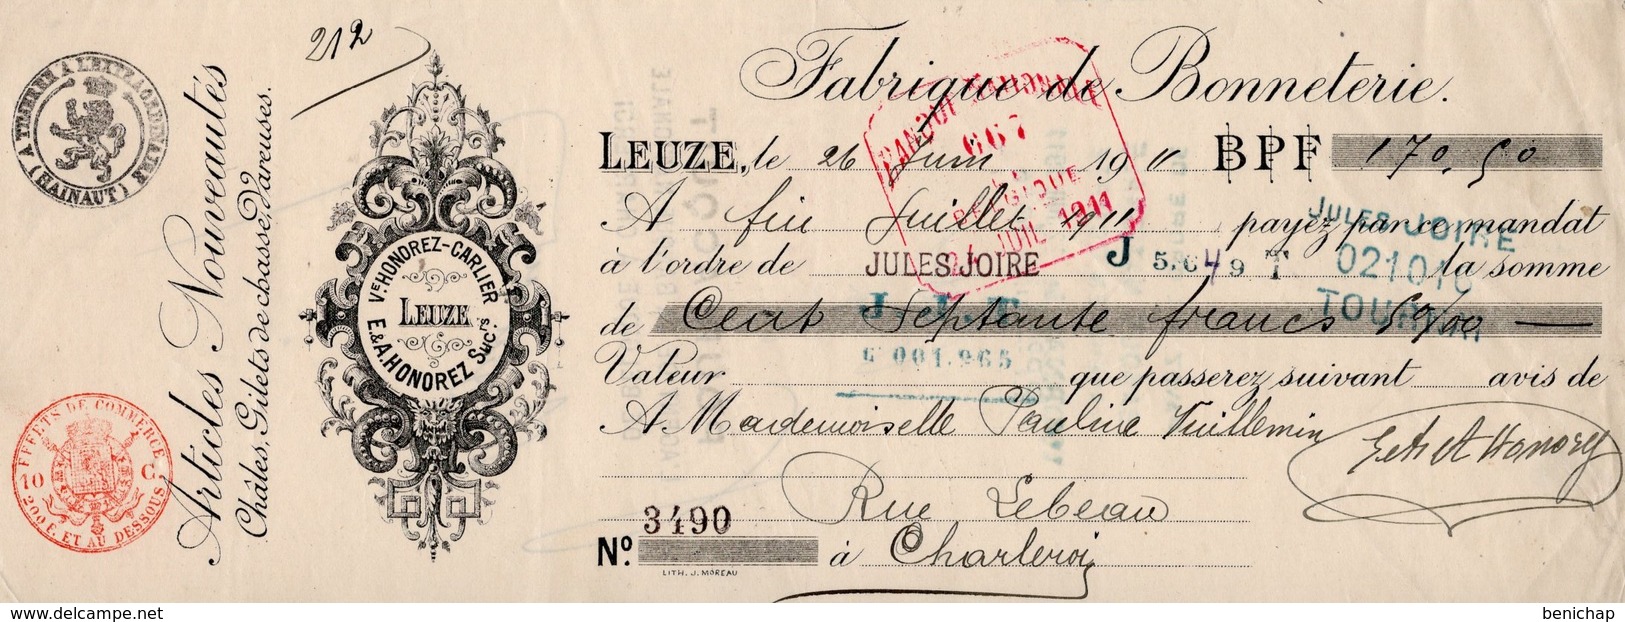 212
Fabrique de Bonneterie.
LEUZE, le 26 Juin 1911 BPF 170.50
A fin Juillet 1911 payez par ce mandat
à l'ordre de JULES JOIRE la somme
de Cent Septante francs 50/00
Valeur que passerez suivant avis de
A Mademoiselle Pauline Vuillemin
Rue Lebeau
Nº 3490 à Charleroi
LITH. J. MOREAU
Articles Nouveautés
Châles, Gilets de chasse, Vareuses.
Vᴱ HONOREZ-CARLIER
LEUZE
E. & A. HONOREZ Sucʳˢ
(HAINAUT)
EFFETS DE COMMERCE
10 C.
200 F. ET AU DESSOUS
BANQUE NATIONALE
667
BELGIQUE
JUIL 1911
J 5.649 T
JULES JOIRE
TOURNAI
001.965
delcampe.net
benichap